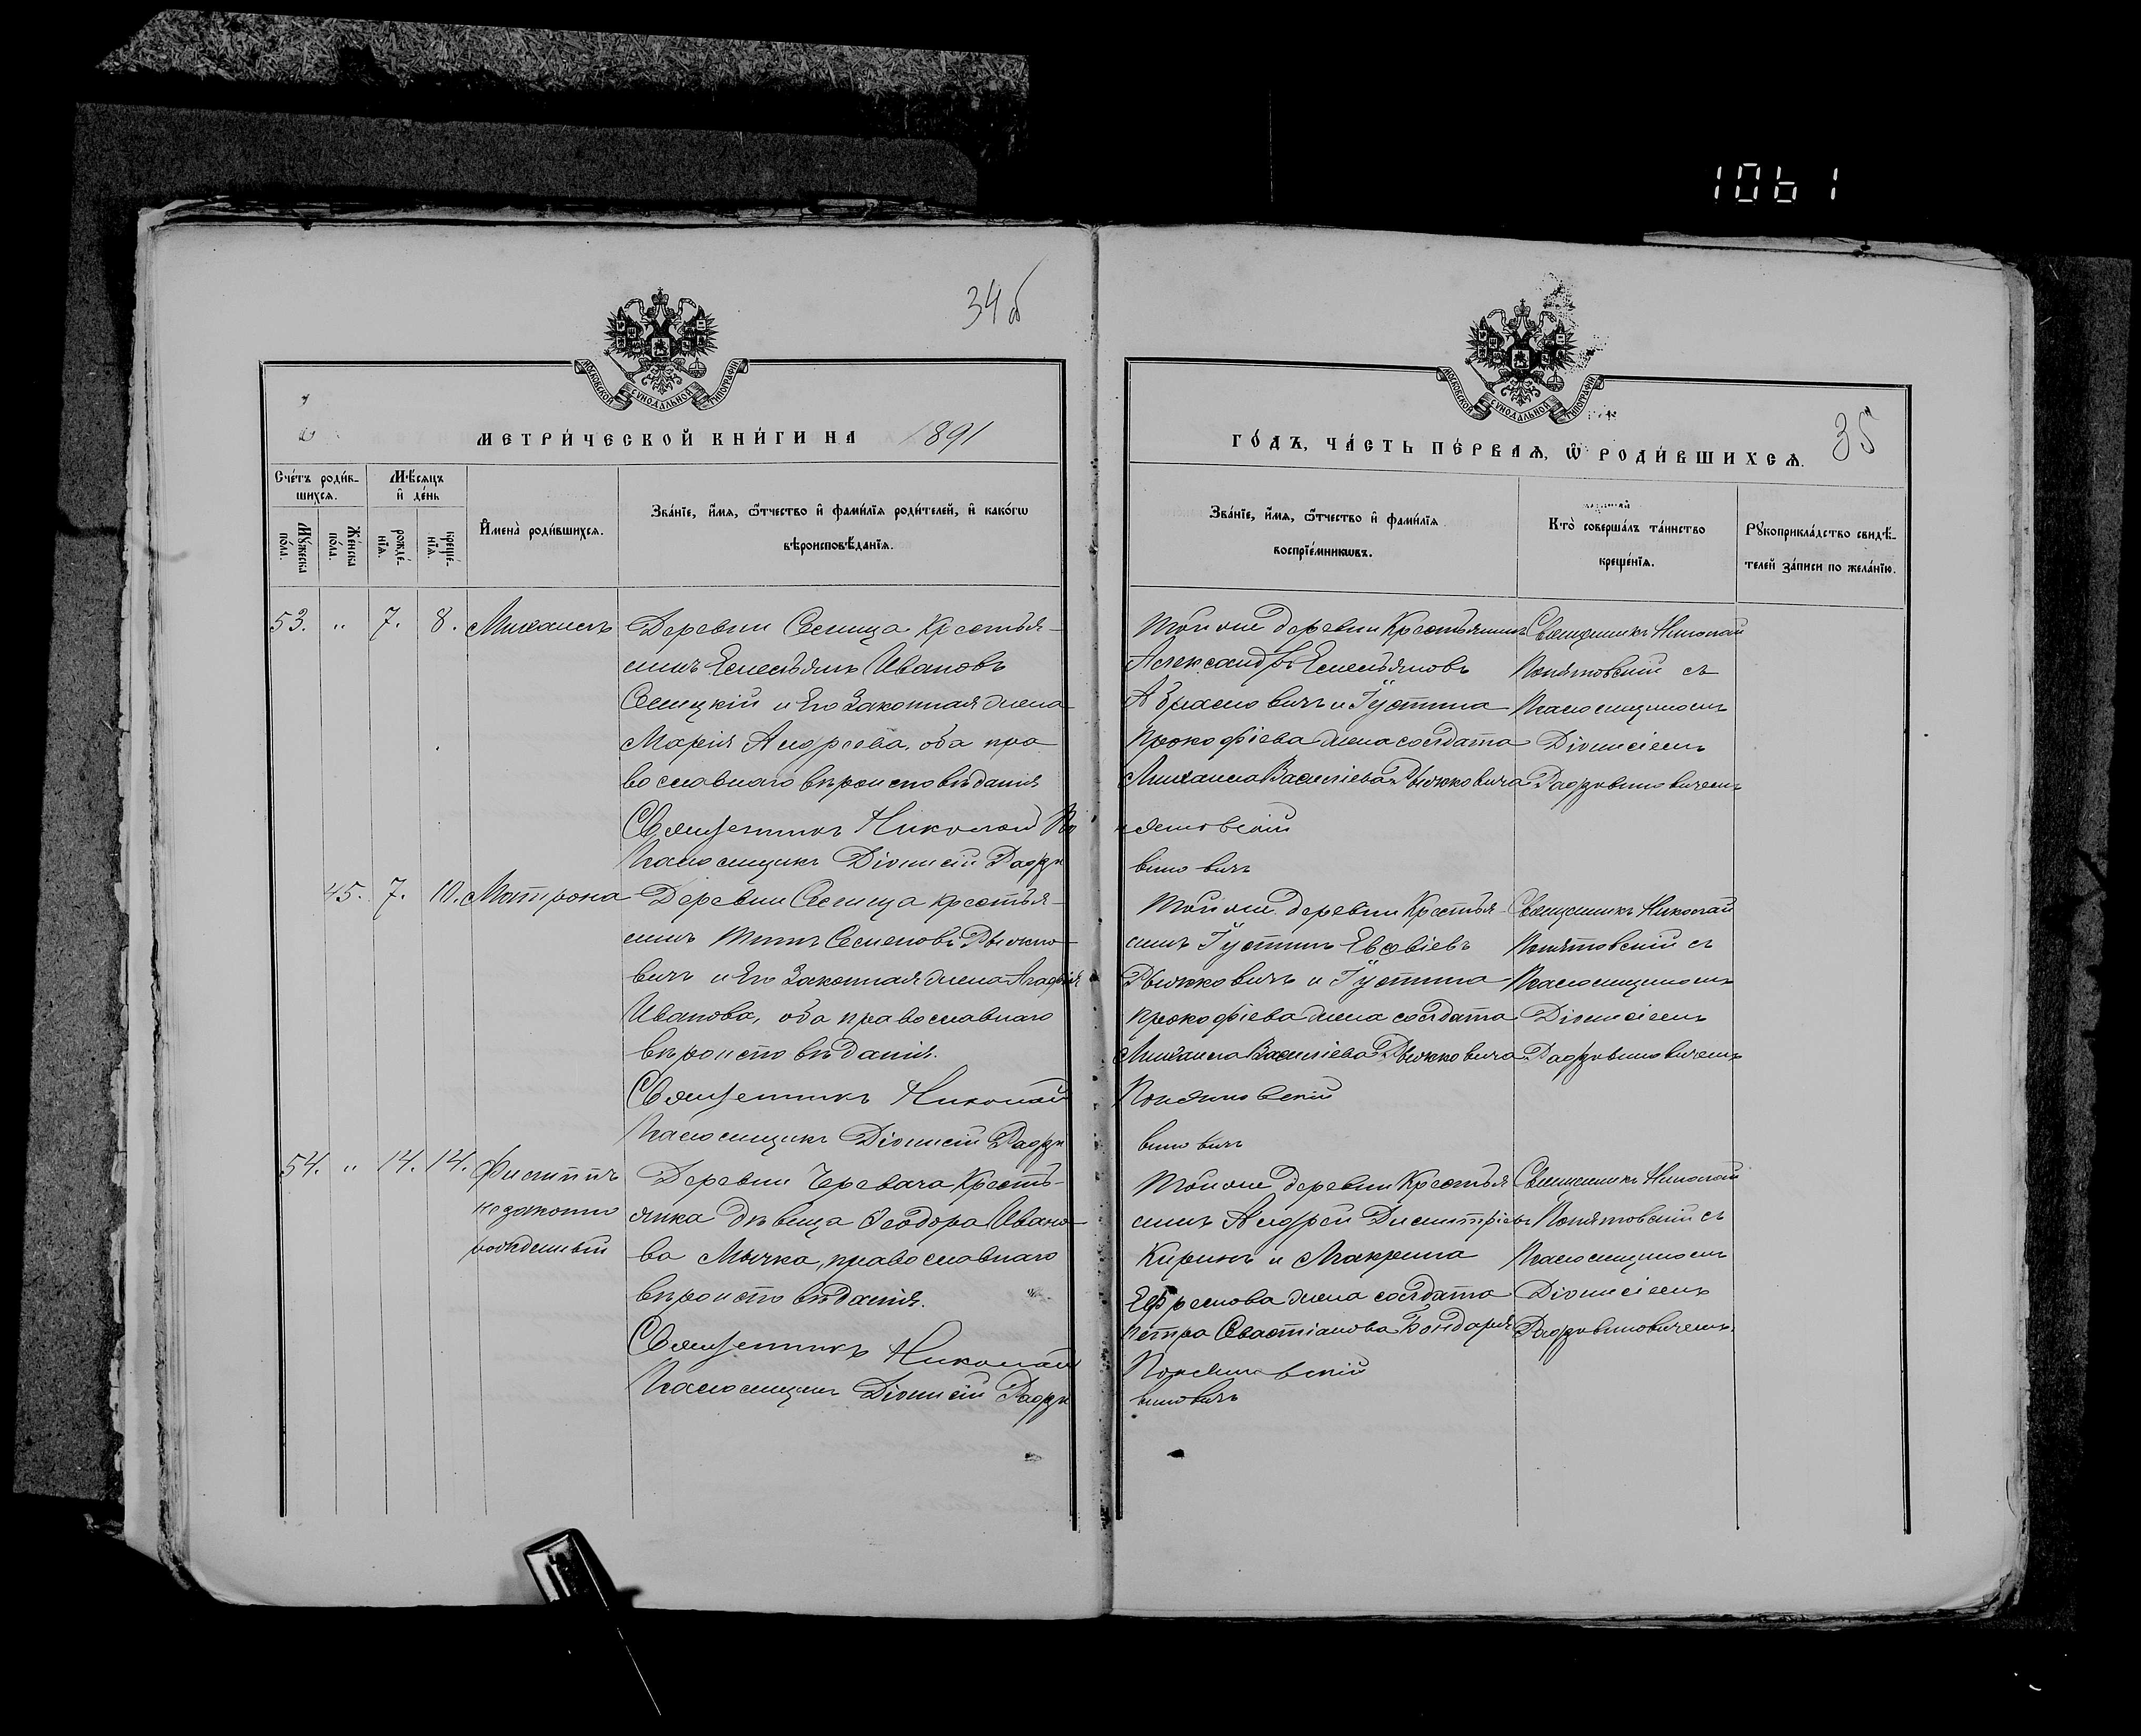 1061
34 об
35
МОСКОВСКОЙ СУНОДАЛЬНОЙ ТИПОГРАФІИ
МОСКОВСКОЙ СУНОДАЛЬНОЙ ТИПОГРАФІИ
МЕТРИ́ЧЕСКОЙ КНИ́ГИ НА 1891
ГО́ДЪ, ЧА́СТЬ ПЕ́РВАѦ, Ѡ РОДИ́ВШИХСѦ.
Сче́тъ роди́в-
шихсѧ.
Мѣ́сѧцъ
и҆ де́нь
Мꙋ́жеска по́ла.
Же́нска по́ла.
рожде́-
нїѧ.
креще́-
нїѧ.
И҆мена̀ роди́вшихсѧ.
Зва́нїе, и҆́мѧ, ѻ҆́тчество и҆ фами́лїѧ роди́телей, и҆ како́гѡ
вѣроисповѣ́данїѧ.
Зва́нїе, и҆́мѧ, ѻ҆́тчество и҆ фами́лїѧ
воспрїе́мникѡвъ.
Кто̀ соверша́лъ та́инство
креще́нїѧ.
Рꙋкоприкла́дство свидѣ́-
телей за́писи по жела́нїю.
53. " 7. 8. Михаилъ
Деревни Селища крестья-
нинъ Емельянъ Ивановъ
и его законная жена
Марія Андреева, оба пра
вославнаго вѣроисповѣданія
Священникъ Николай По
Псаломщикъ Діонисій Радзи
Той же деревни крестьянинъ
Александръ Емельяновъ
Абрамовичъ и Іустина
Прокофіева жена солдата
Михаила Василіева Рычковича
нятовскій
виновичъ
Священникъ Николай
Понятовскій съ
Псаломщикомъ
Діонисіемъ
Радзивиновичемъ
45. 7. 10. Матрона
Деревни Селища крестья-
нинъ Титъ Семеновъ Рычко-
вичъ и его законная жена Агафія
Иванова, оба православнаго
вѣроисповѣданія.
Священникъ Николай
Псаломщикъ Діонисій Радзи
Той же деревни крестья-
нинъ Іустинъ Евсѣвіевъ
Рычковичъ и Іустина
Прокофіева жена солдата
Михаила Василіева Рычковича
Понятовскій
виновичъ
Священникъ Николай
Понятовскій съ
Псаломщикомъ
Діонисіемъ
Радзивиновичемъ
54. " 14. 14. Филиппъ
незаконно
рожденный
Деревни Черевача кресть-
янка дѣвица Ѳеодора Ивано-
ва Мычка, православнаго
вѣроисповѣданія.
Священникъ Николай
Псаломщикъ Діонисій Радзи
Той же деревни крестья
нинъ Андрей Димитріевъ
и Макрина
Ефремова жена солдата
Петра Севастіанова Бондаря
Понятовскій
виновичъ
Священникъ Николай
Понятовскій съ
Псаломщикомъ
Діонисіемъ
Радзивиновичемъ.